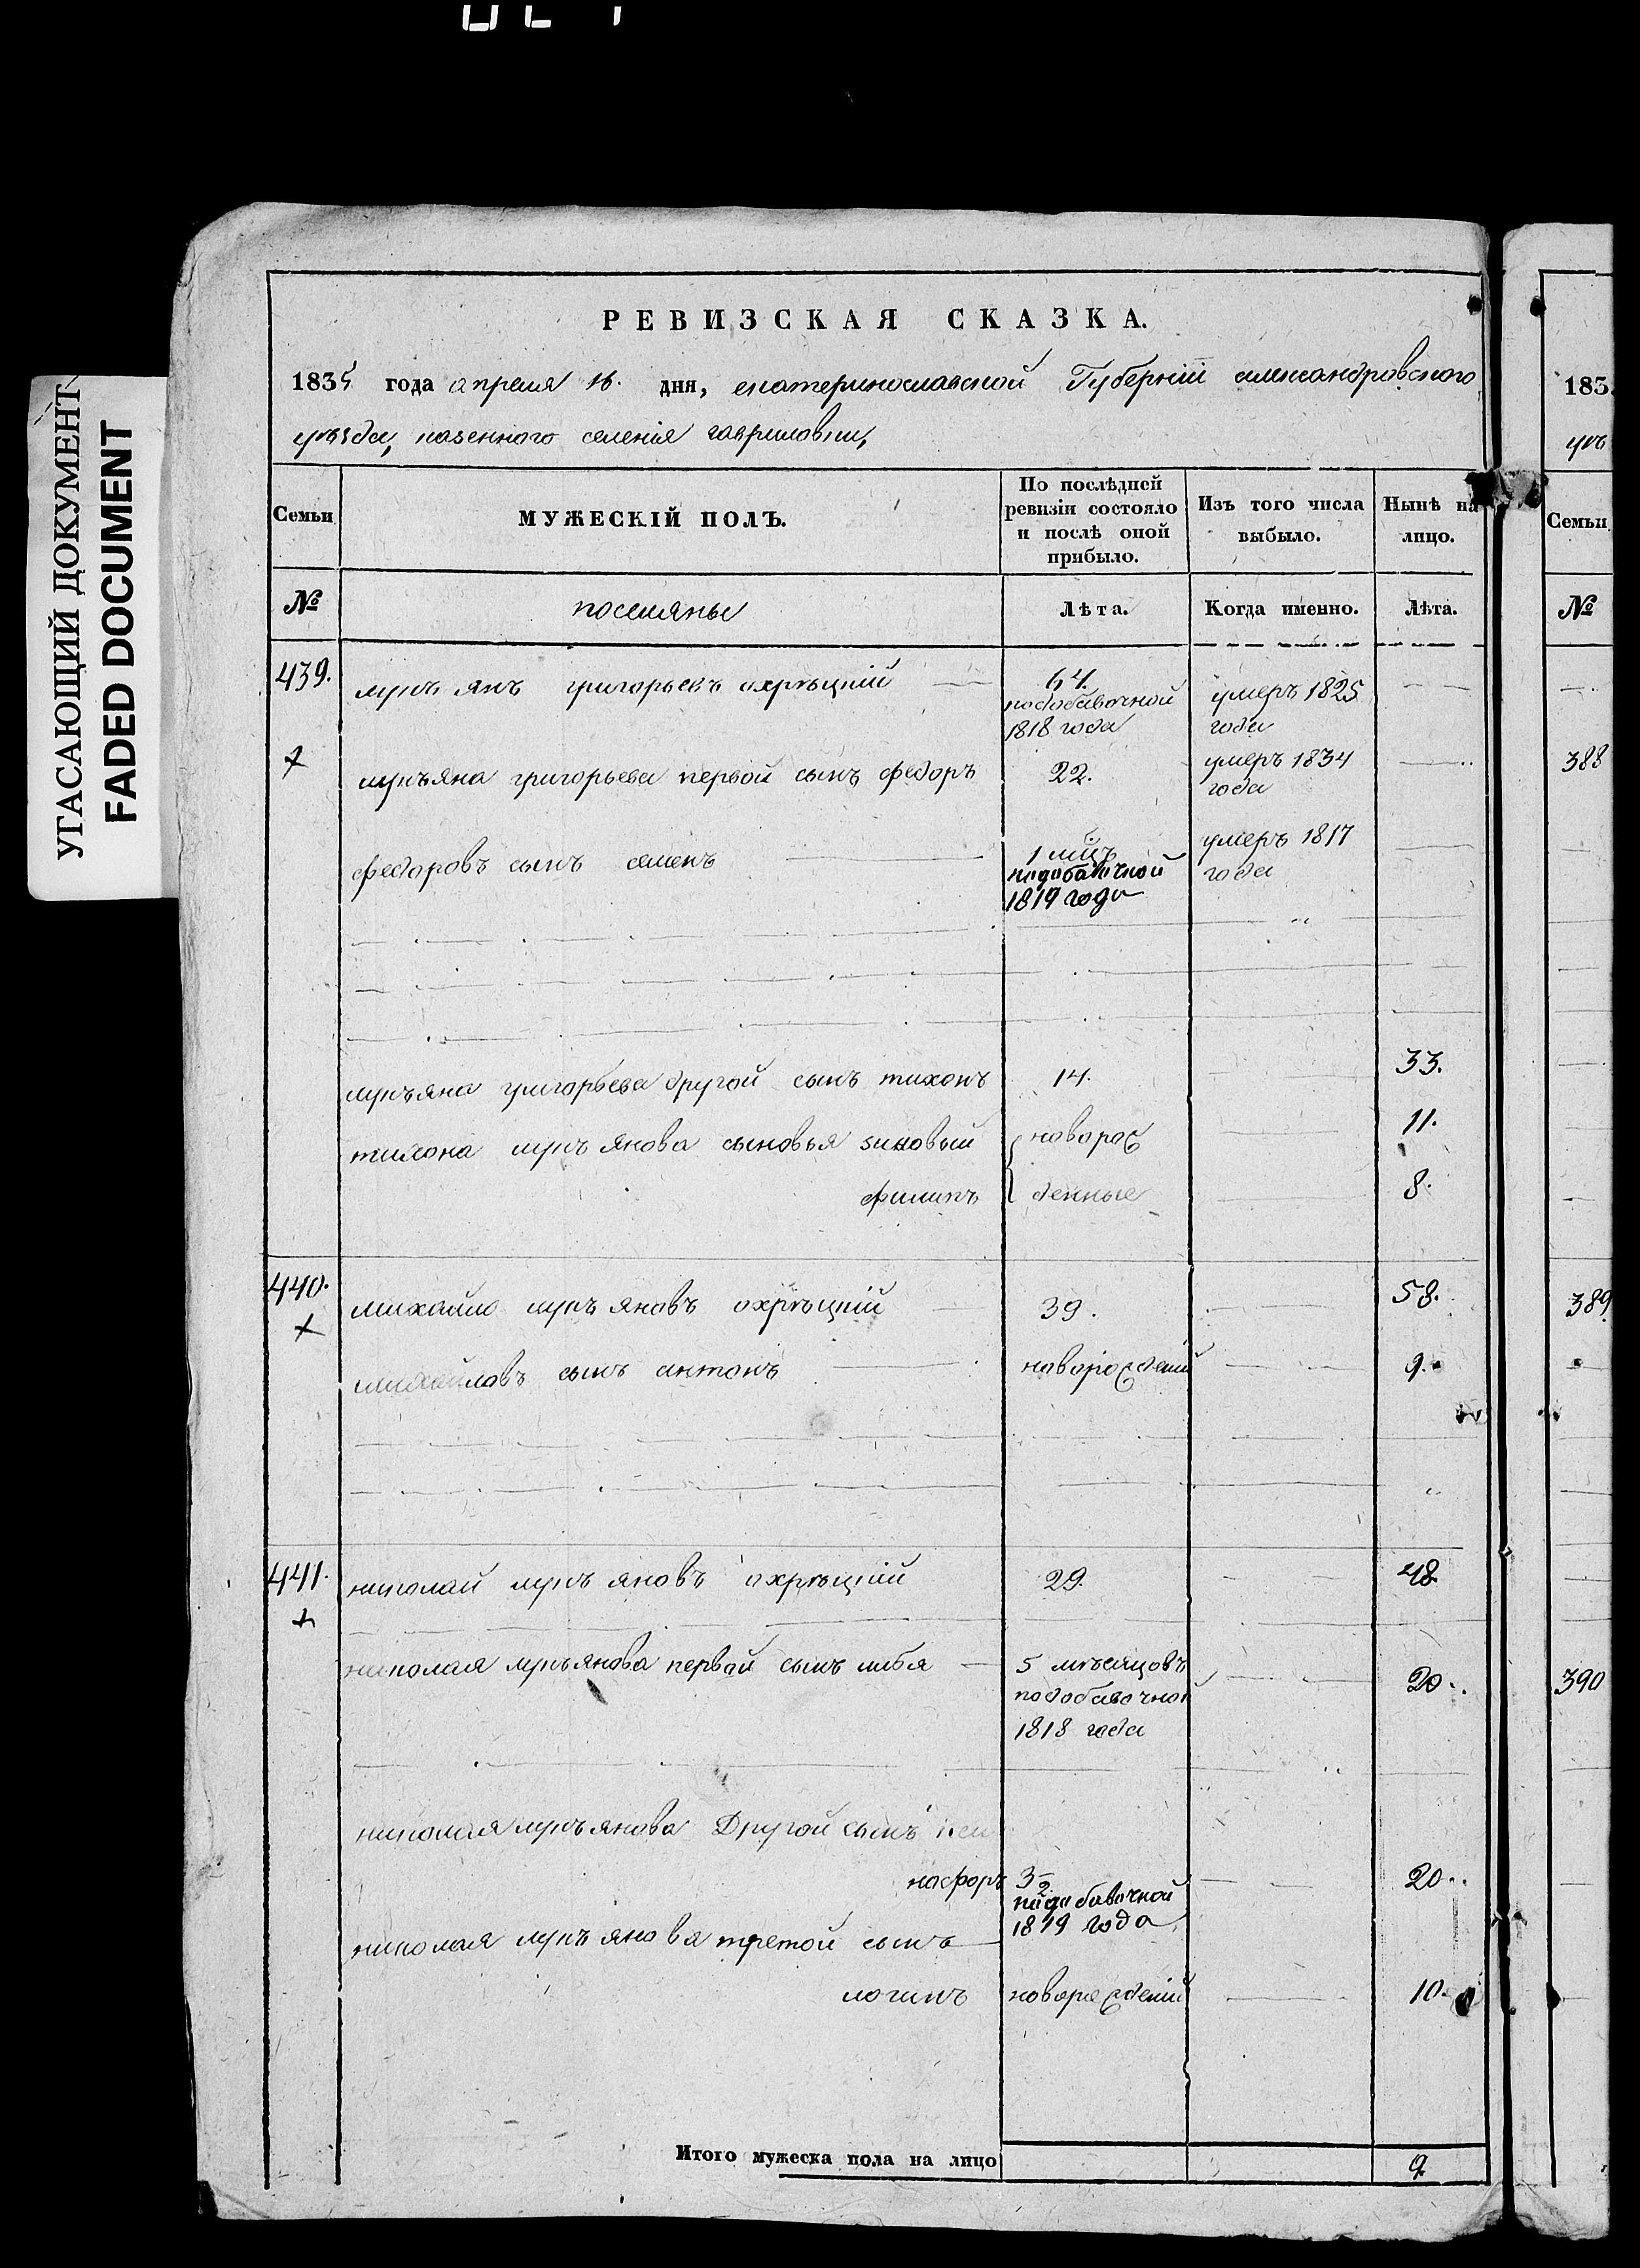 УГАСАЮЩИЙ ДОКУМЕНТ
FADED DOCUMENT
РЕВИЗСКАЯ СКАЗКА.
1835 года апреля 16. дня, екатеринославской Губерніи александровского
уѣзда, казенного селенія гавриловки,
Семьи
МУЖЕСКІЙ ПОЛЪ.
По послѣдней ревизіи состояло и послѣ оной прибыло.
Изъ того числа выбыло.
Нынѣ на лицо.
№
поселяне
Лѣта.
Когда именно.
Лѣта.
439. лукъянъ григорьевъ охрѣцкій 64. подобавочной 1818 года умеръ 1825 года
лукъяна григорьева первой сынъ федоръ 22. умеръ 1834 года
федоровъ сынъ семенъ 1 мѣцъ подобавочной 1819 года умеръ 1817 года
лукъяна григорьева другой сынъ тихонъ 14. 33.
тихона лукъянова сыновья зиновый новорож 11.
филипъ денные 8.
440. михайло лукъяновъ охрѣцкій 39. 58.
михайловъ сынъ антонъ новорожденій 9.
441. николай лукъяновъ охрѣцкій 29. 48.
николая лукъянова первой сынъ 5 мѣсяцовъ 20.
подобавочной
1818 года
николая лукъянова Другой сынъ
3 20.
подобавочной
1819 года
николая лукъянова третой сынъ
логинъ новорожденій 10.
Итого мужеска пола на лицо 9
183
уѣ
Семьи
№
388
389
390